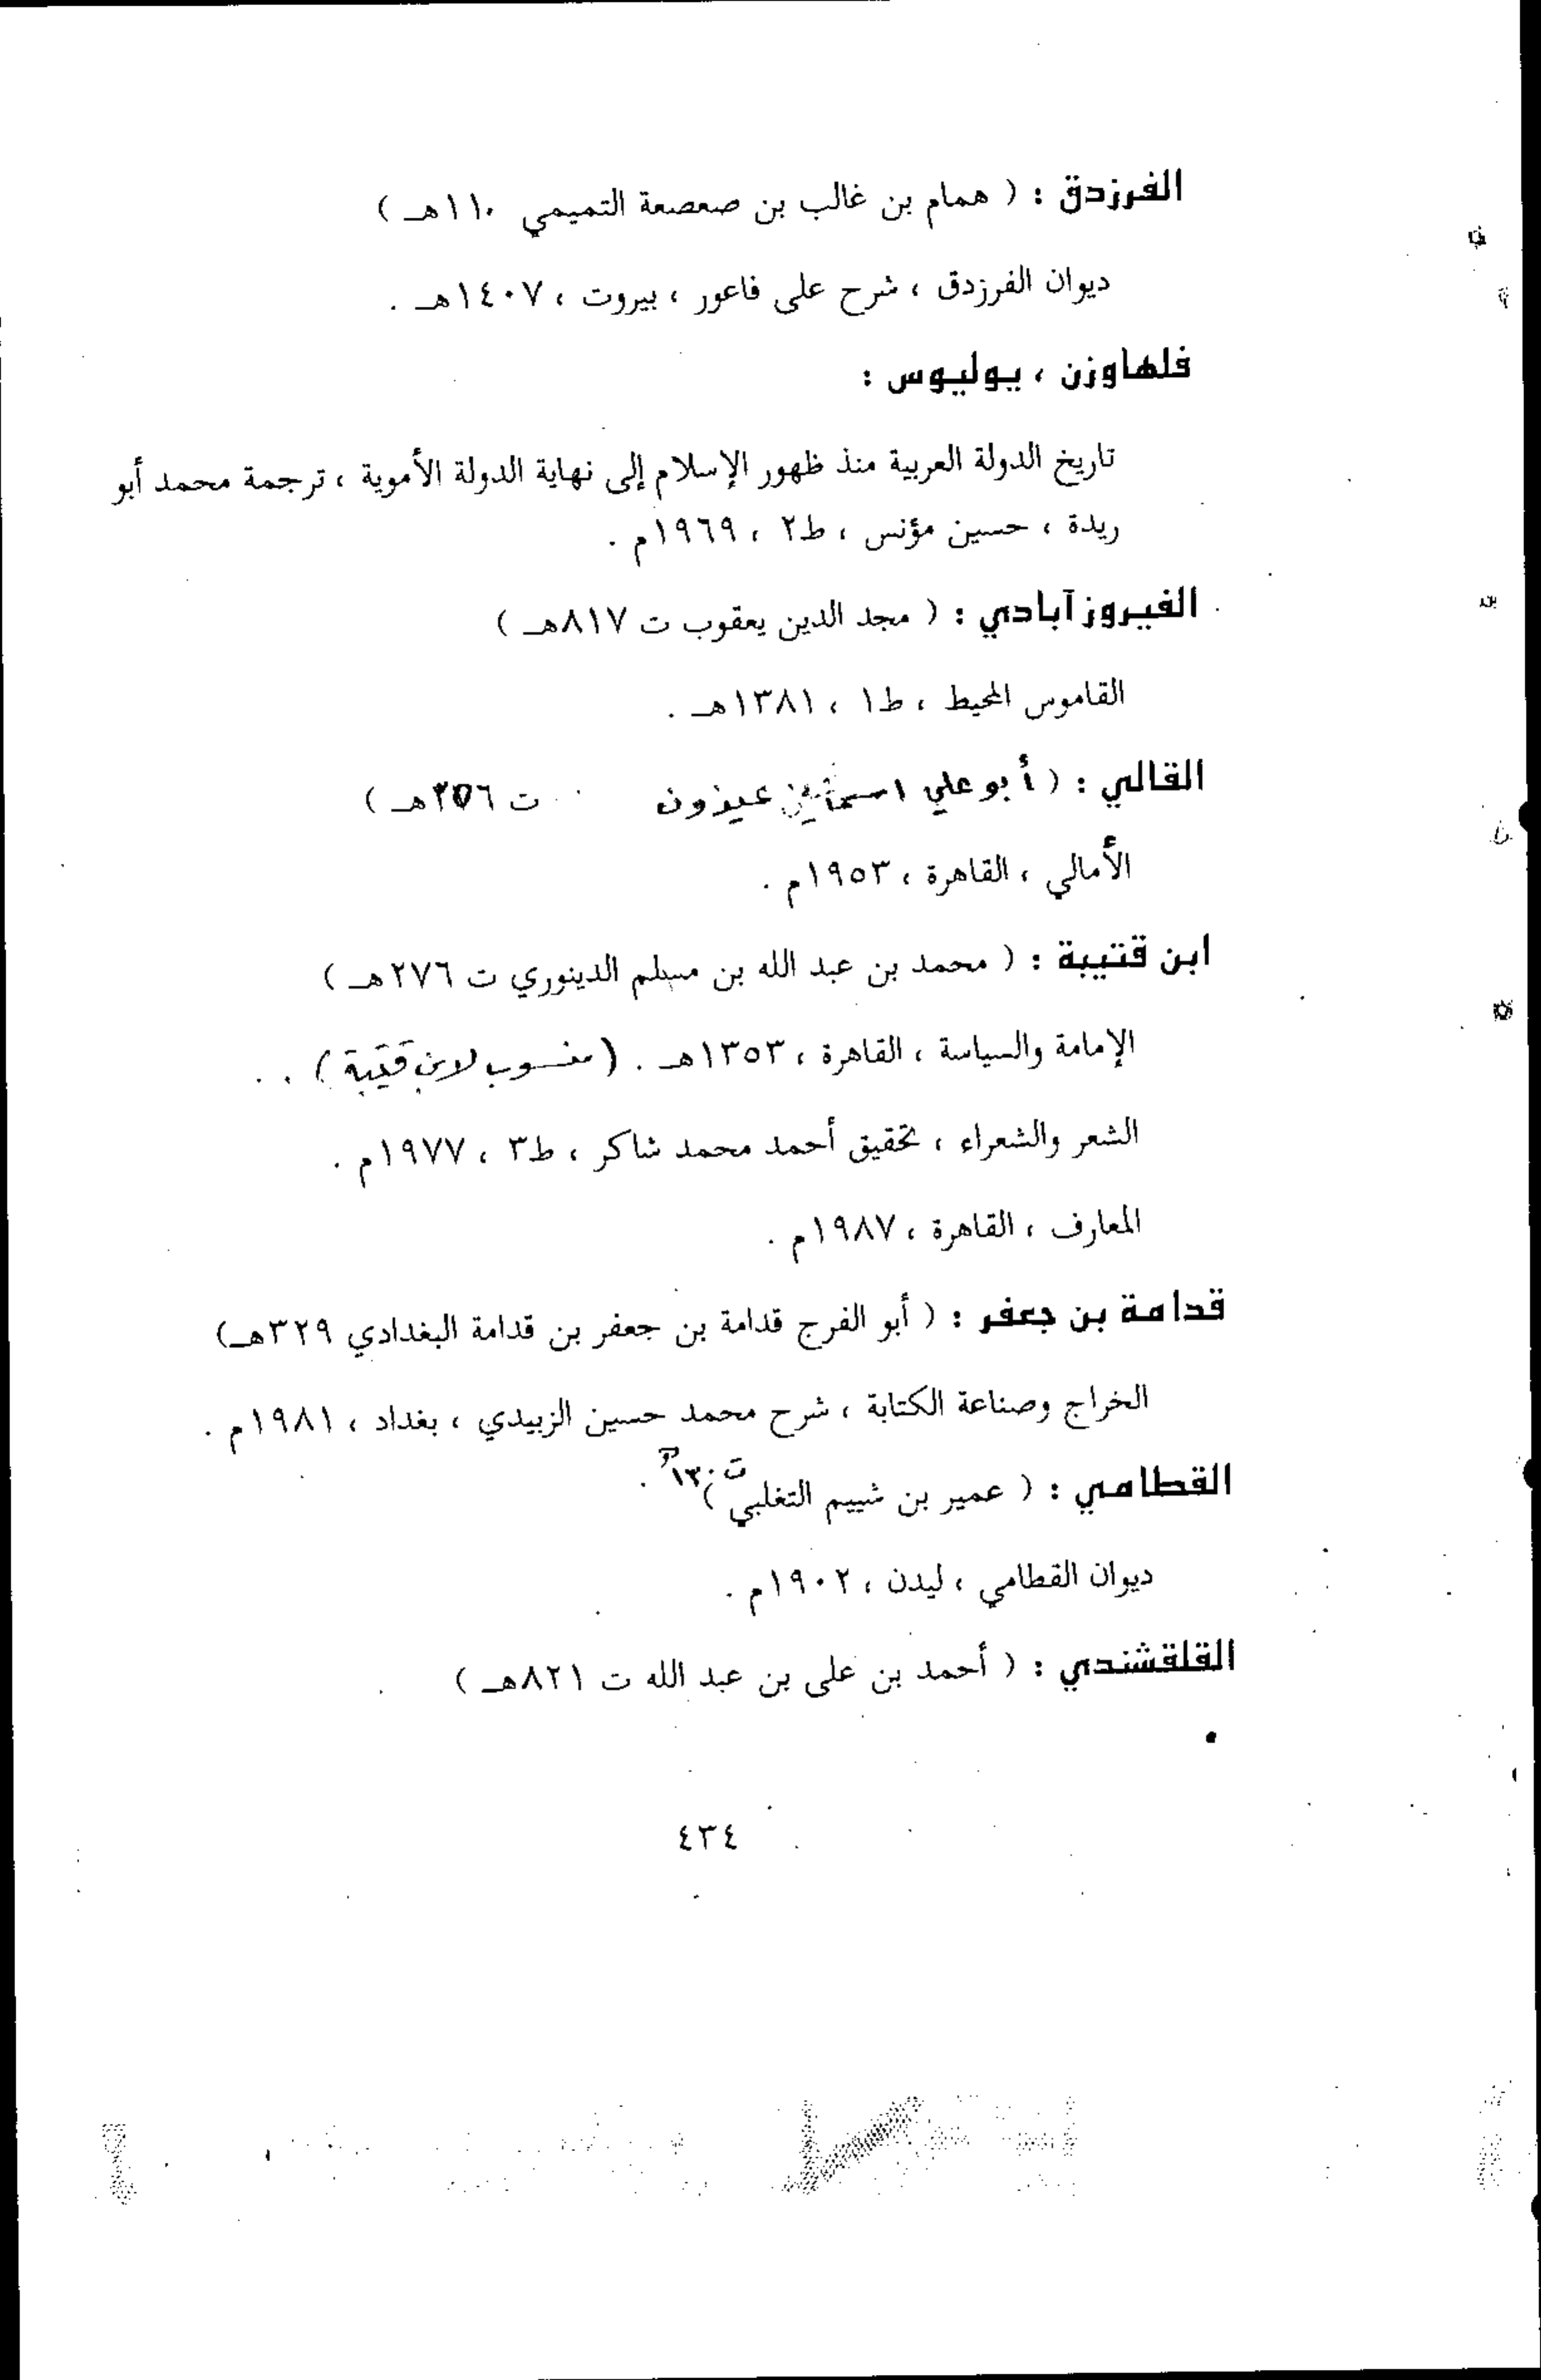 الفرزدق : ( همام بن غالب بن صعصعة التميمي ١١٠هـ )
ديوان الفرزدق ، شرح على فاعور ، بيروت ، ١٤٠٧هـ .
فلهاوزن ، يوليوس :
تاريخ الدولة العربية منذ ظهور الإسلام إلى نهاية الدولة الأموية ، ترجمة محمد أبو
ريدة ، حسين مؤنس ، ط٢ ، ١٩٦٩م .
الفيروزآبادي : ( مجد الدين يعقوب ت ٨١٧هـ )
القاموس المحيط ، ط١ ، ١٣٨١هـ .
القالي : ( أبو علي عيذون ت ٣٥٦هـ )
الأمالي ، القاهرة ، ١٩٥٣م .
ابن قتيبة : ( محمد بن عبد الله بن مسلم الدينوري ت ٢٧٦هـ )
الإمامة والسياسة ، القاهرة ، ١٣٥٣هـ . ( منسوب لابن قتيبة ) .
الشعر والشعراء ، تحقيق أحمد محمد شاكر ، ط٣ ، ١٩٧٧م .
المعارف ، القاهرة ، ١٩٨٧م .
قدامة بن جعفر : ( أبو الفرج قدامة بن جعفر بن قدامة البغدادي ٣٢٩هـ)
الخراج وصناعة الكتابة ، شرح محمد حسين الزبيدي ، بغداد ، ١٩٨١م .
القطامي : ( عمير بن شييم التغلبي ) ت ١٣٠هـ .
ديوان القطامي ، ليدن ، ١٩٠٢م .
القلقشندي : ( أحمد بن على بن عبد الله ت ٨٢١هـ )
٤٣٤